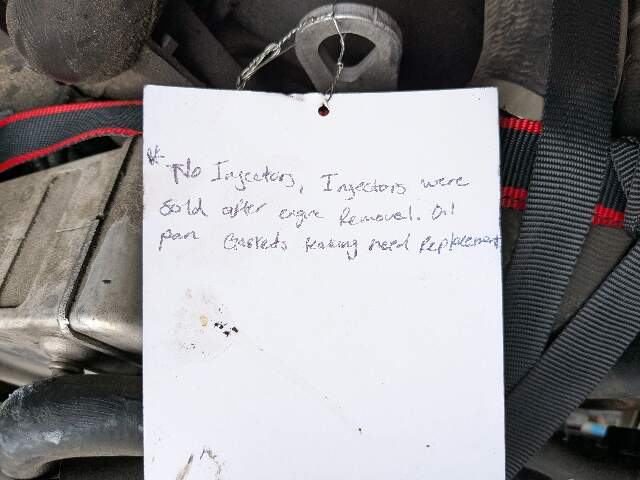 * No Injectors, Injectors were
sold after engine Removal. Oil
pan Gaskets leaking need Replacement